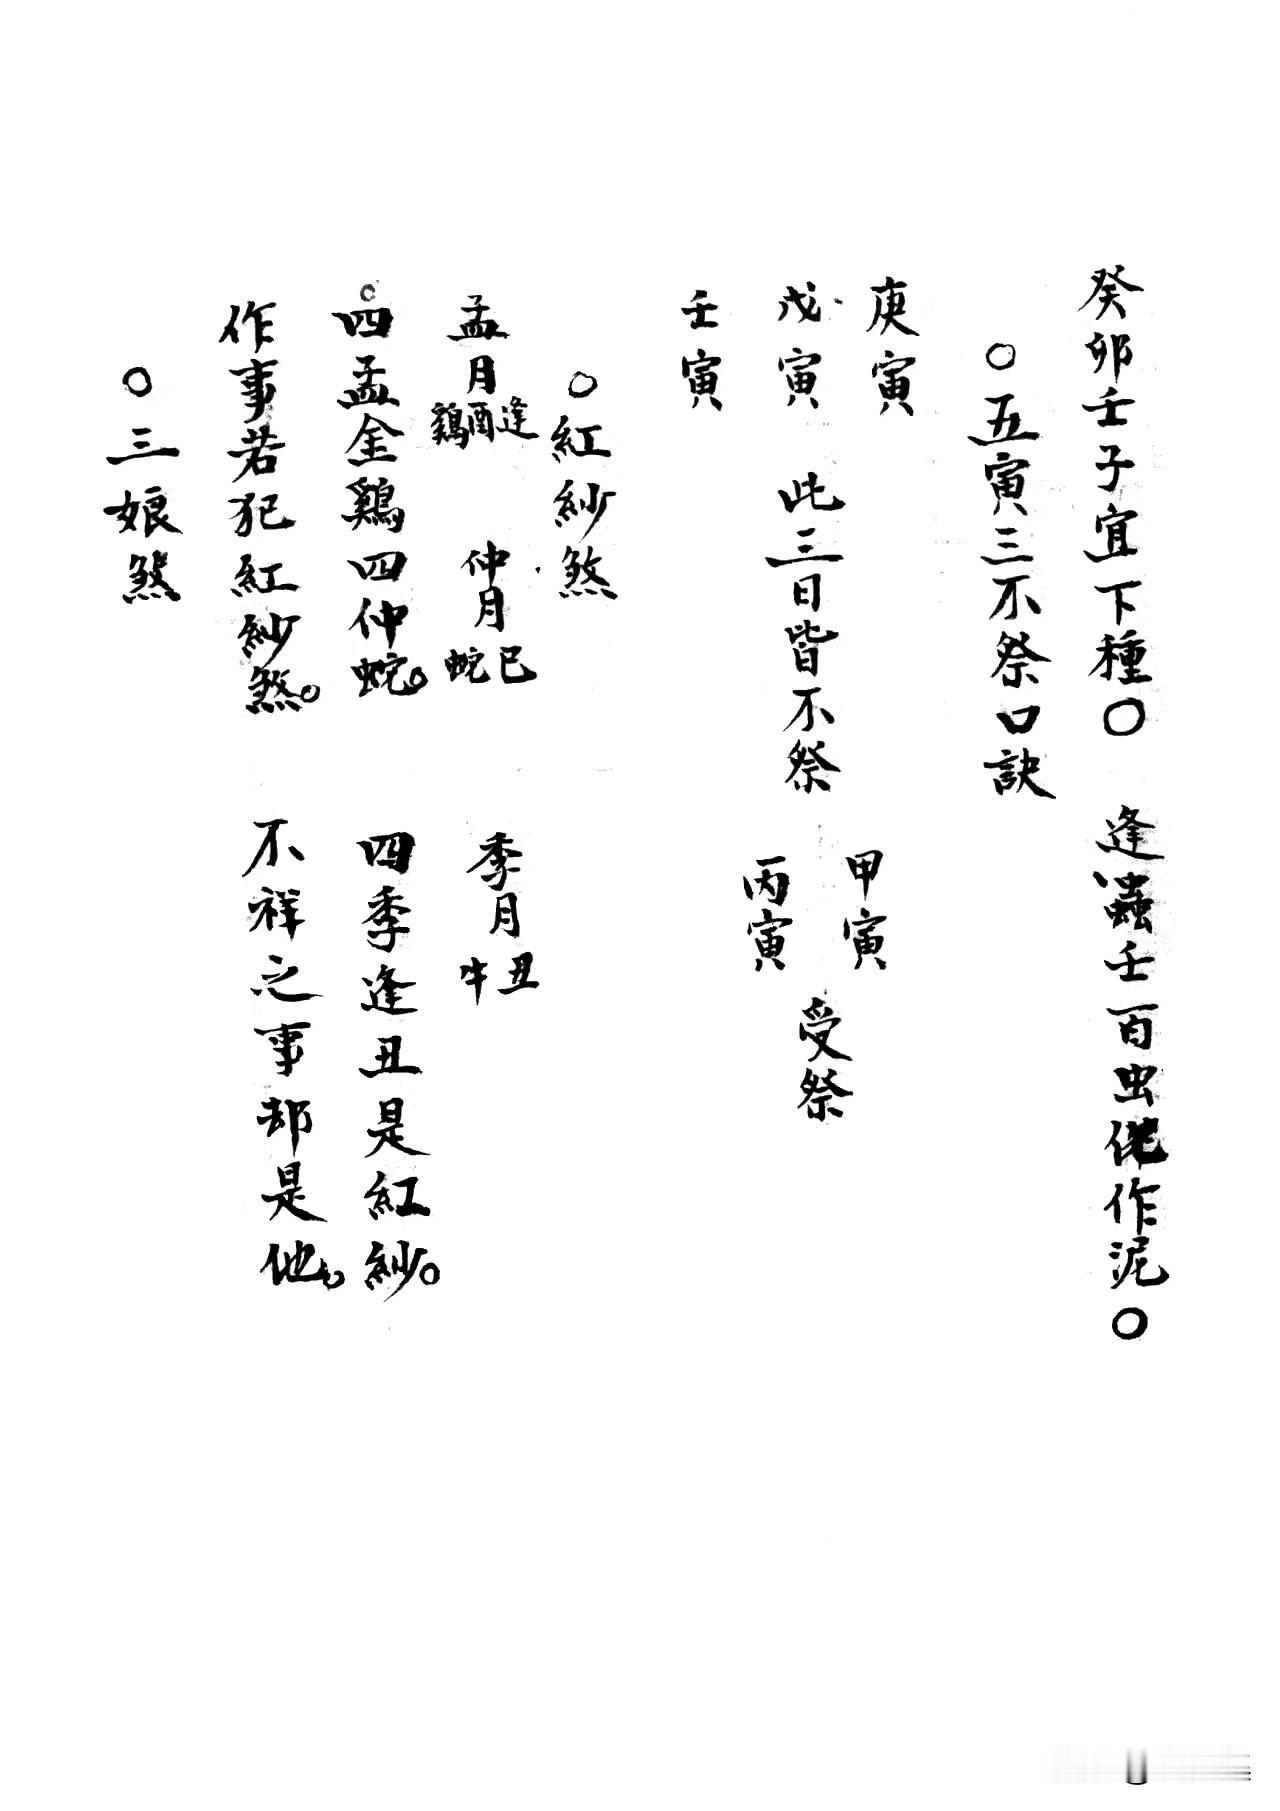 癸卯壬子宜下種○　逢蟲壬百虫作泥○
○五寅三不祭口訣
庚寅
戊寅
壬寅
此三日皆不祭
甲寅
丙寅
受祭
○紅紗煞
孟月逢酉鷄　仲月巳蛇　季月丑牛
四孟金鷄四仲蛇。四季逢丑是紅紗。
作事若犯紅紗煞。不祥之事却是他。
○三娘煞